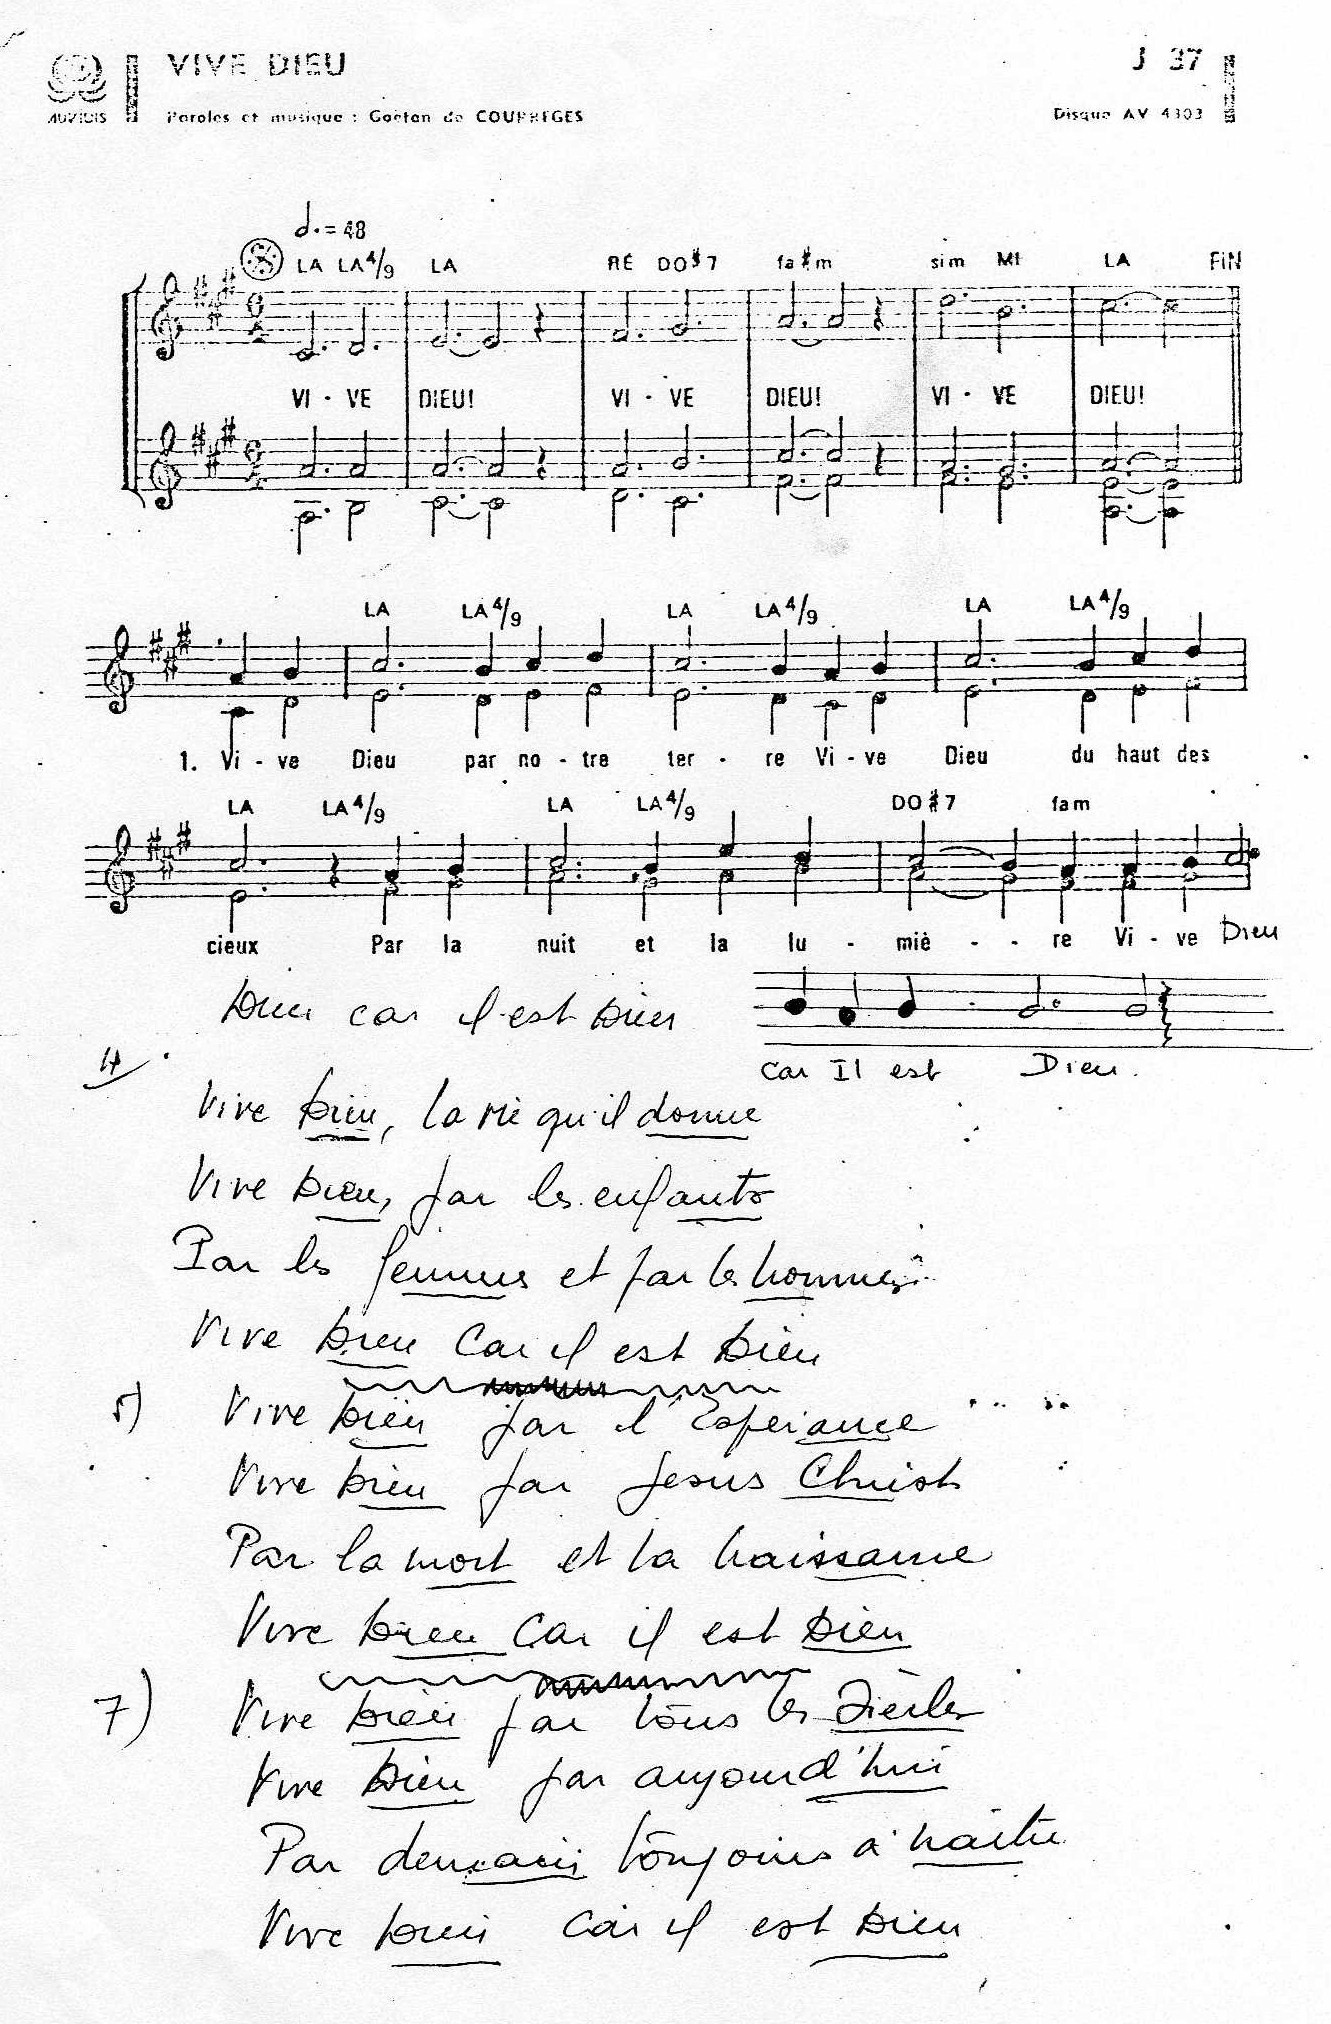 VIVE DIEU
J 37
AUVIDIS
Paroles et musique : Gaëtan de COURREGES
Disque AV 4303
= 48
LA LA4/9 LA RÉ DO#7 fa#m sim MI LA FIN
VI - VE DIEU! VI - VE DIEU! VI - VE DIEU!
LA LA4/9 LA LA4/9 LA LA4/9
1. Vi - ve Dieu par no - tre ter - re Vi - ve Dieu du haut des
LA LA4/9 LA LA4/9 DO#7 fam
cieux Par la nuit et la lu - miè - - re Vi - ve Dieu
Dieu car il est Dieu
car Il est Dieu.
Vive Dieu, la vie qu'il donne
Vive Dieu, par les enfants
Par les femmes et par les hommes
Vive Dieu Car il est Dieu
5) Vive Dieu par l'Espérance
Vive Dieu par Jesus Christ
Par la mort et la naissance
Vive Dieu Car il est Dieu
7) Vive Dieu par tous les siècles
Vive Dieu par aujourd'hui
Par demain toujours à naître
Vive Dieu car il est Dieu